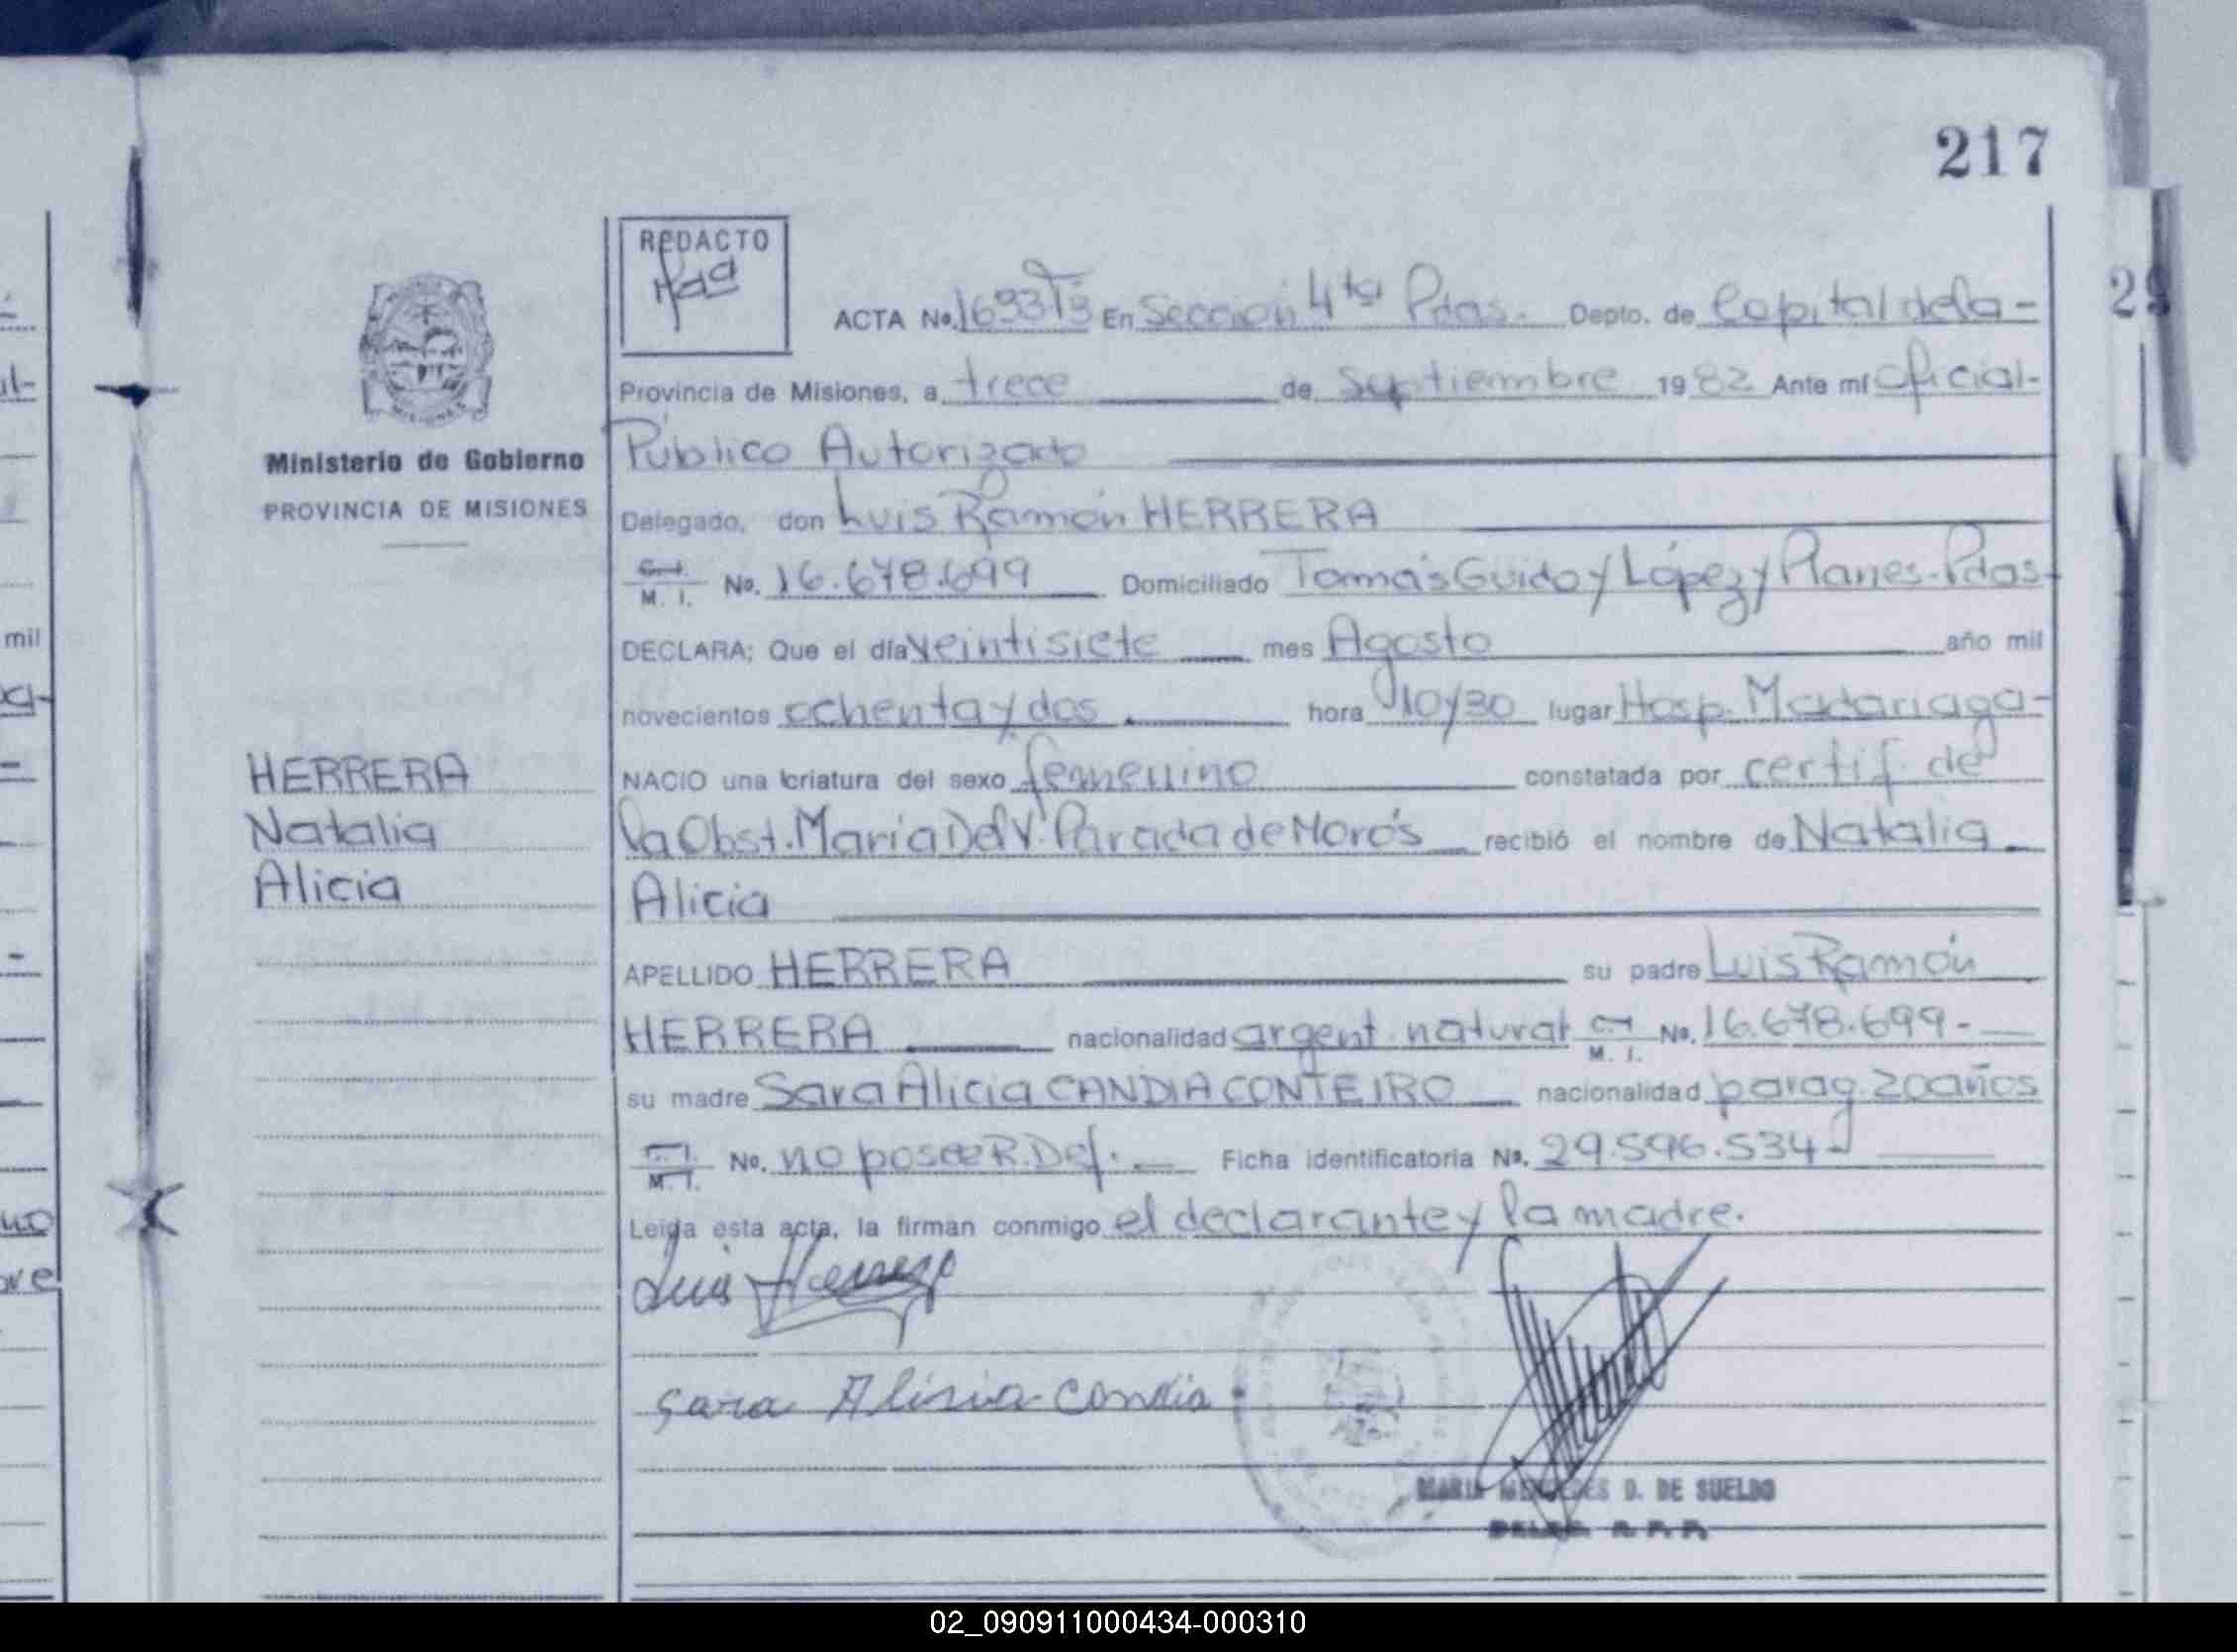 217
REDACTO
ACTA No. En Sección 4ta Pdas. Depto. de Capital de la -
Provincia de Misiones, a trece de Septiembre 1982 Ante mí Oficial-
Público Autorizado
Ministerio de Gobierno
PROVINCIA DE MISIONES
Delegado, don Luis Ramón HERRERA
C. I. M. I. No. 16.678.699 Domiciliado Tomás Guido y López y Planes-Pdas-
DECLARA; Que el día veintisiete mes Agosto año mil
novecientos ochenta y dos. hora 10y30 lugar Hosp. Madariaga-
HERRERA
Natalia
Alicia
NACIO una criatura del sexo femenino constatada por certif. de
la Obst. María Del V. Parada de Morós recibió el nombre de Natalia
Alicia
APELLIDO HERRERA su padre Luis Ramón
HERRERA nacionalidad argent. natural C.I. M. I. No. 16.678.699-
su madre Sara Alicia CANDIA CONTEIRO nacionalidad parag. 20 años
C. I. M. I. No. no posee R. Def. Ficha identificatoria No. 29.596.534-
Leída esta acta, la firman conmigo el declarante y la madre.
Luis Herrera
Sara Alisia Candia
MARIA D. DE SUELDO
mil
02_090911000434-000310